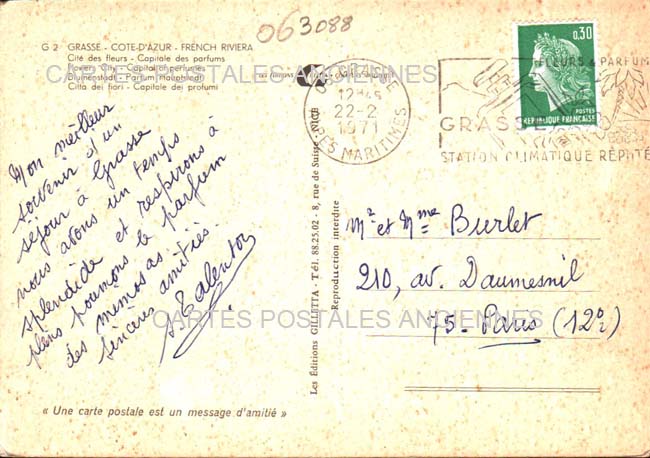 063088
G 2 GRASSE - COTE-D'AZUR - FRENCH RIVIERA
Cité des fleurs - Capitale des parfums
Flowers City - Capital of perfumes
Blumenstadt - Parfum Hauptstedt
Citta dei fiori - Capitale dei profumi
CARTES POSTALES ANCIENNES
06 GRASSE
12H45
22-2
1971
ALPES MARITIMES
0,30
POSTES
REPUBLIQUE FRANÇAISE
FLEURS & PARFUMS
GRASSE
STATION CLIMATIQUE RÉPUTÉE
Mon meilleur
souvenir d'un
séjour à Grasse
nous avons un temps
splendide et respirons à
pleins poumons le parfum
des mimosas.
Sincères amitiés.
Les Éditions GILLETTA - Tél. 88.25.02 - 8, rue de Suisse - NICE
Reproduction interdite
Mr et Mme Burlet
210, av. Daumesnil
75. Paris (12e)
CARTES POSTALES ANCIENNES
« Une carte postale est un message d'amitié »